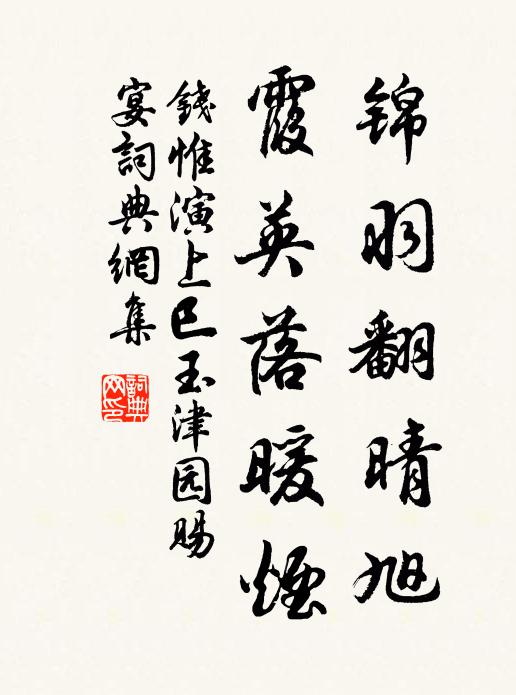 錦羽翻晴旭
霞英落暖煙
錢惟演上巳玉津园賜
宴詞典網集
詞典
网印